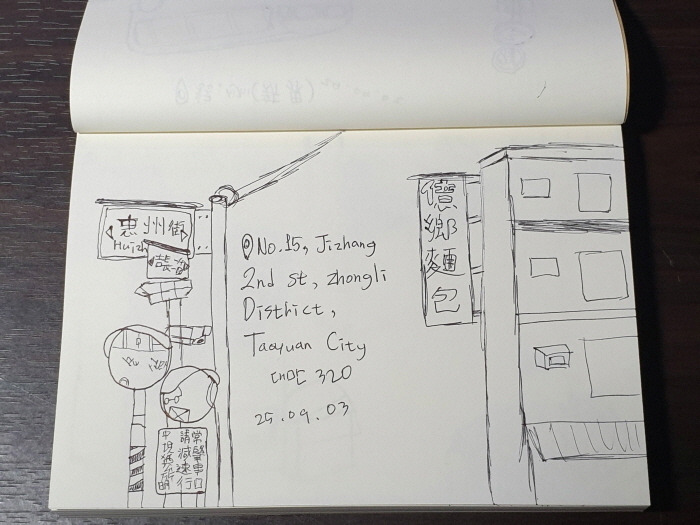 惠州街
Huizh
No.15, Jizhang
2nd st, zhongli
District,
Taoyuan City
대만 320
25.09.03
常肇事口
請減速行
億鄉麵包